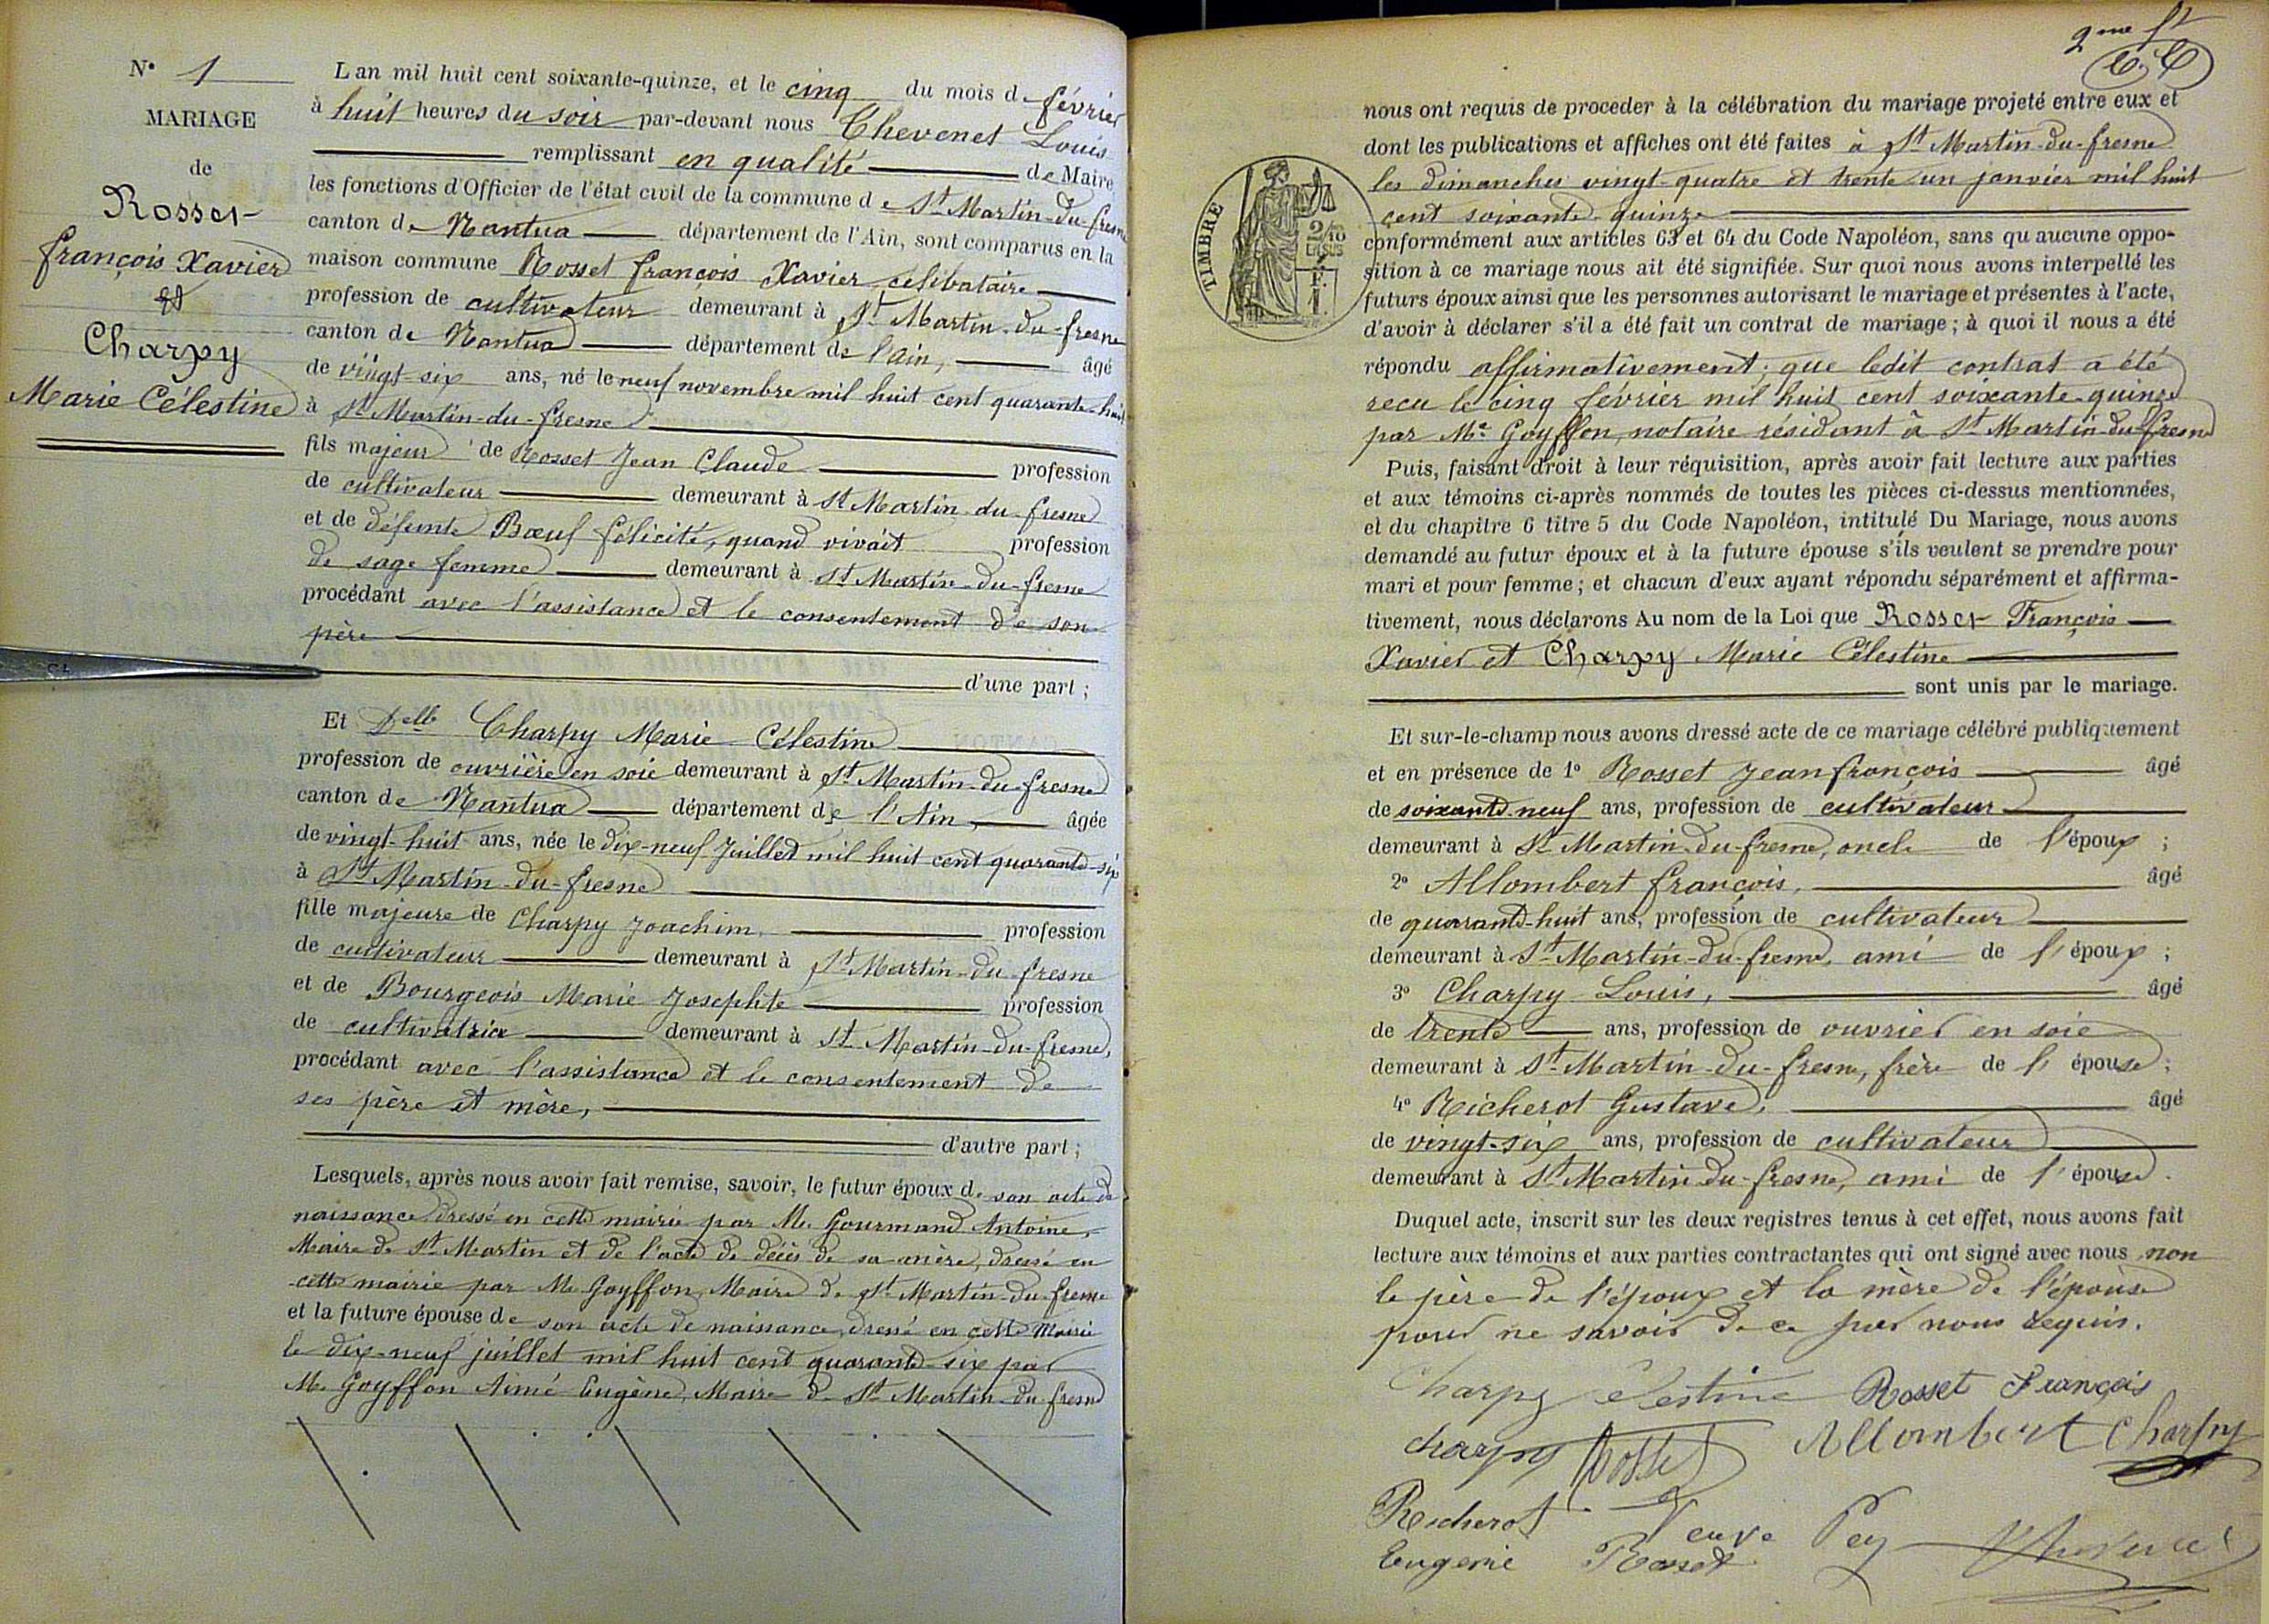 N° 1
MARIAGE
de
Rosset
françois Xavier
et
Charpy
Marie Célestine
L an mil huit cent soixante-quinze, et le cinq du mois de février
à huit heures du soir par-devant nous Chevenet Louis
remplissant en qualité de Maire
les fonctions d'Officier de l'état civil de la commune de St Martin-du-fresne
canton de Nantua département de l'Ain, sont comparus en la
maison commune Rosset françois Xavier célibataire
profession de cultivateur demeurant à St Martin-du-fresne
canton de Nantua département de l'ain, âgé
de vingt-six ans, né le neuf novembre mil huit cent quarante-huit
à St Martin-du-fresne
fils majeur de Rosset Jean Claude profession
de cultivateur demeurant à St Martin-du-fresne
et de défunte Bœuf félicité, quand vivait profession
de sage femme demeurant à St Martin-du-fresne
procédant avec l'assistance et le consentement de son
père
d'une part ;
Et Delle Charpy Marie Célestine
profession de ouvrière en soie demeurant à St Martin-du-fresne
canton de Nantua département de l'Ain, âgée
de vingt-huit ans, née le dix-neuf Juillet mil huit cent quarante-six
à St Martin-du-fresne
fille majeure de Charpy Joachim. profession
de cultivateur demeurant à St Martin-du-fresne
et de Bourgeois Marie Josephte profession
de cultivatrice demeurant à St Martin-du-fresne,
procédant avec l'assistance et le consentement de
ses père et mère,
d'autre part ;
Lesquels, après nous avoir fait remise, savoir, le futur époux de son acte de
naissance dressé en cette mairie par M. Gourmand Antoine,
Maire de St Martin et de l'acte de décès de sa mère, dressé en
cette mairie par M. Goyffon, Maire de St Martin-du-fresne
et la future épouse de son acte de naissance, dressé en cette Mairie
le dix-neuf juillet mil huit cent quarante-six par
M. Goyffon Aimé Eugène, Maire de St Martin-du-fresne
2me ft
nous ont requis de proceder à la célébration du mariage projeté entre eux et
dont les publications et affiches ont été faites à St Martin-du-fresne
les dimanches vingt-quatre et trente un janvier mil huit
cent soixante-quinze
TIMBRE
2/10
EN SUS
conformément aux articles 63 et 64 du Code Napoléon, sans qu aucune oppo-
sition à ce mariage nous ait été signifiée. Sur quoi nous avons interpellé les
futurs époux ainsi que les personnes autorisant le mariage et présentes à l'acte,
d'avoir à déclarer s'il a été fait un contrat de mariage ; à quoi il nous a été
répondu affirmativement ; que ledit contrat a été
recu le cinq février mil huit cent soixante-quinze
par Me Goyffon, notaire résidant à St Martin-du-fresne
Puis, faisant droit à leur réquisition, après avoir fait lecture aux parties
et aux témoins ci-après nommés de toutes les pièces ci-dessus mentionnées,
et du chapitre 6 titre 5 du Code Napoléon, intitulé Du Mariage, nous avons
demandé au futur époux et à la future épouse s'ils veulent se prendre pour
mari et pour femme ; et chacun d'eux ayant répondu séparément et affirma-
tivement, nous déclarons Au nom de la Loi que Rosset François
Xavier et Charpy Marie Célestine
sont unis par le mariage.
Et sur-le-champ nous avons dressé acte de ce mariage célébré publiquement
et en présence de 1° Rosset Jean françois âgé
de soixante-neuf ans, profession de cultivateur
demeurant à St Martin-du-fresne, oncle de l'époux ;
2° Allombert françois, âgé
de quarante-huit ans, profession de cultivateur
demeurant à St Martin-du-fresne, ami de l'époux ;
3° Charpy Louis, âgé
de trente ans, profession de ouvrier en soie
demeurant à St Martin-du-fresne, frère de l'épouse ;
4° Richerot Gustave, âgé
de vingt-six ans, profession de cultivateur
demeurant à St Martin-du-fresne, ami de l'épouse.
Duquel acte, inscrit sur les deux registres tenus à cet effet, nous avons fait
lecture aux témoins et aux parties contractantes qui ont signé avec nous non
le père de l'époux et la mère de l'épouse
pour ne savoir de ce par nous requis.
Charpy Celestine Rosset François
charpy Rosset Allombert Charpy
Richerot Veuve Pey Chevenet
Eugenie Rosset